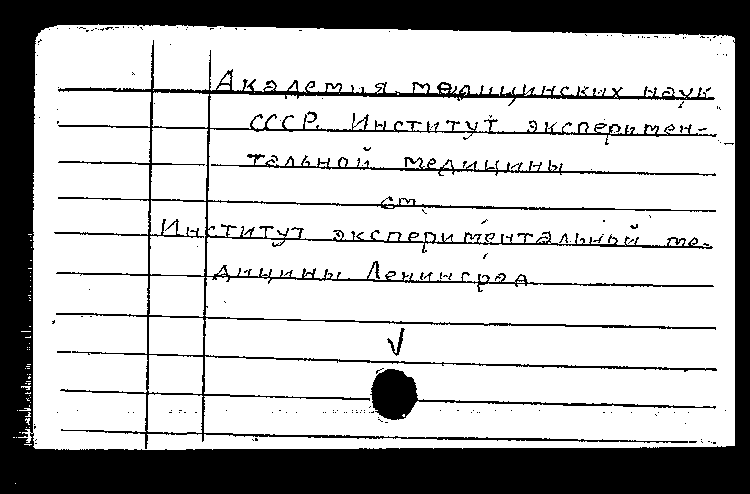 Академия медицинских наук
СССР. Институт эксперимен-
тальной медицины
см.
Институт экспериментальной ме-
дицины. Ленинград